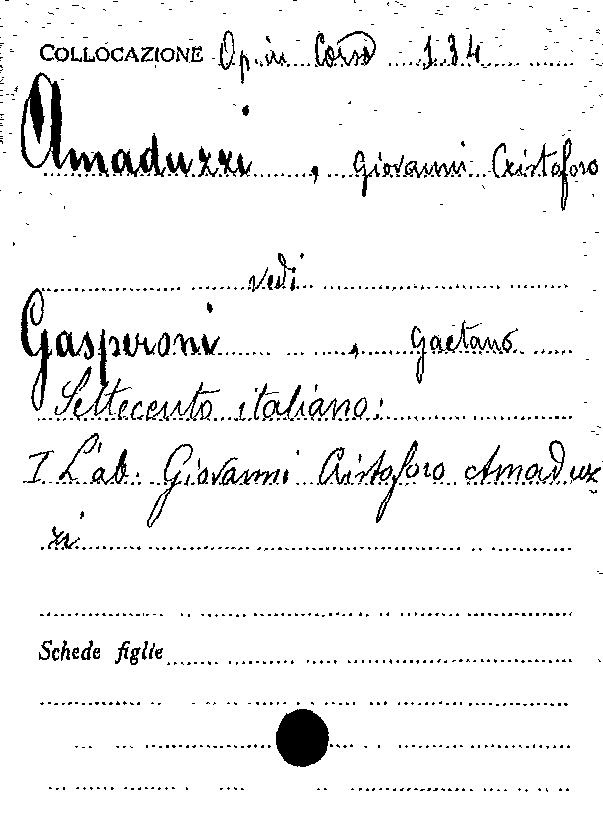 COLLOCAZIONE Op. in Corso 134
Amaduzzi, Giovanni Cristoforo
vedi
Gasperoni, Gaetano
Settecento italiano:
I L'ab. Giovanni Cristoforo Amaduz
zi
Schede figlie